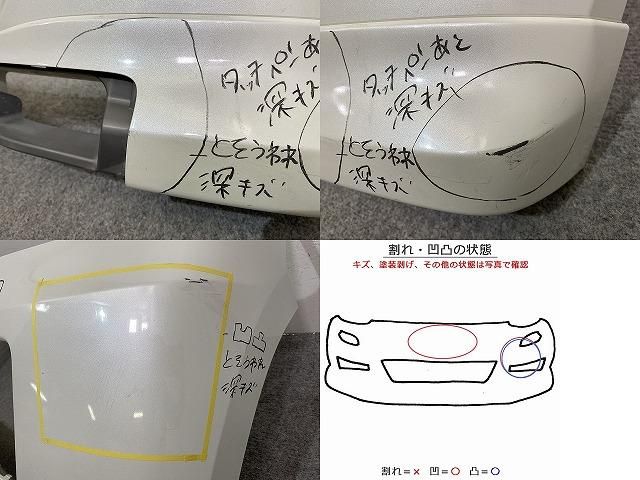 タッチペンあと
深キズ
とそうわれ
深キズ
タッチペンあと
深キズ
とそうわれ
深キズ
凹凸
とそうわれ
深キズ
割れ・凹凸の状態
キズ、塗装剥げ、その他の状態は写真で確認
割れ=× 凹=○ 凸=○